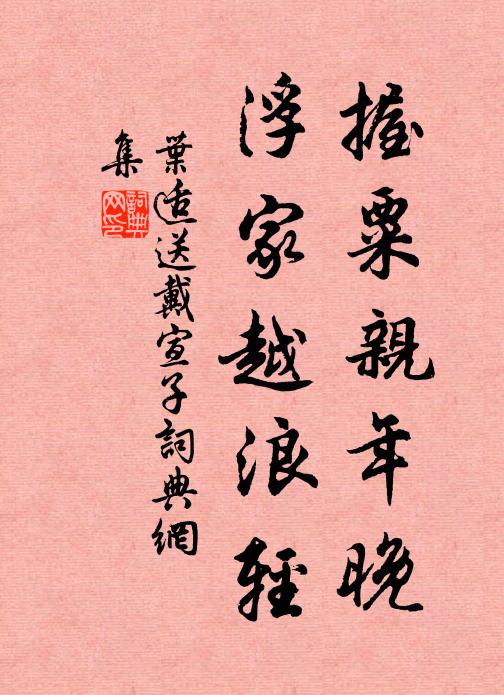 握粟親年晚
浮家越浪輕
葉适送戴宣子詞典網
集
詞典
网印